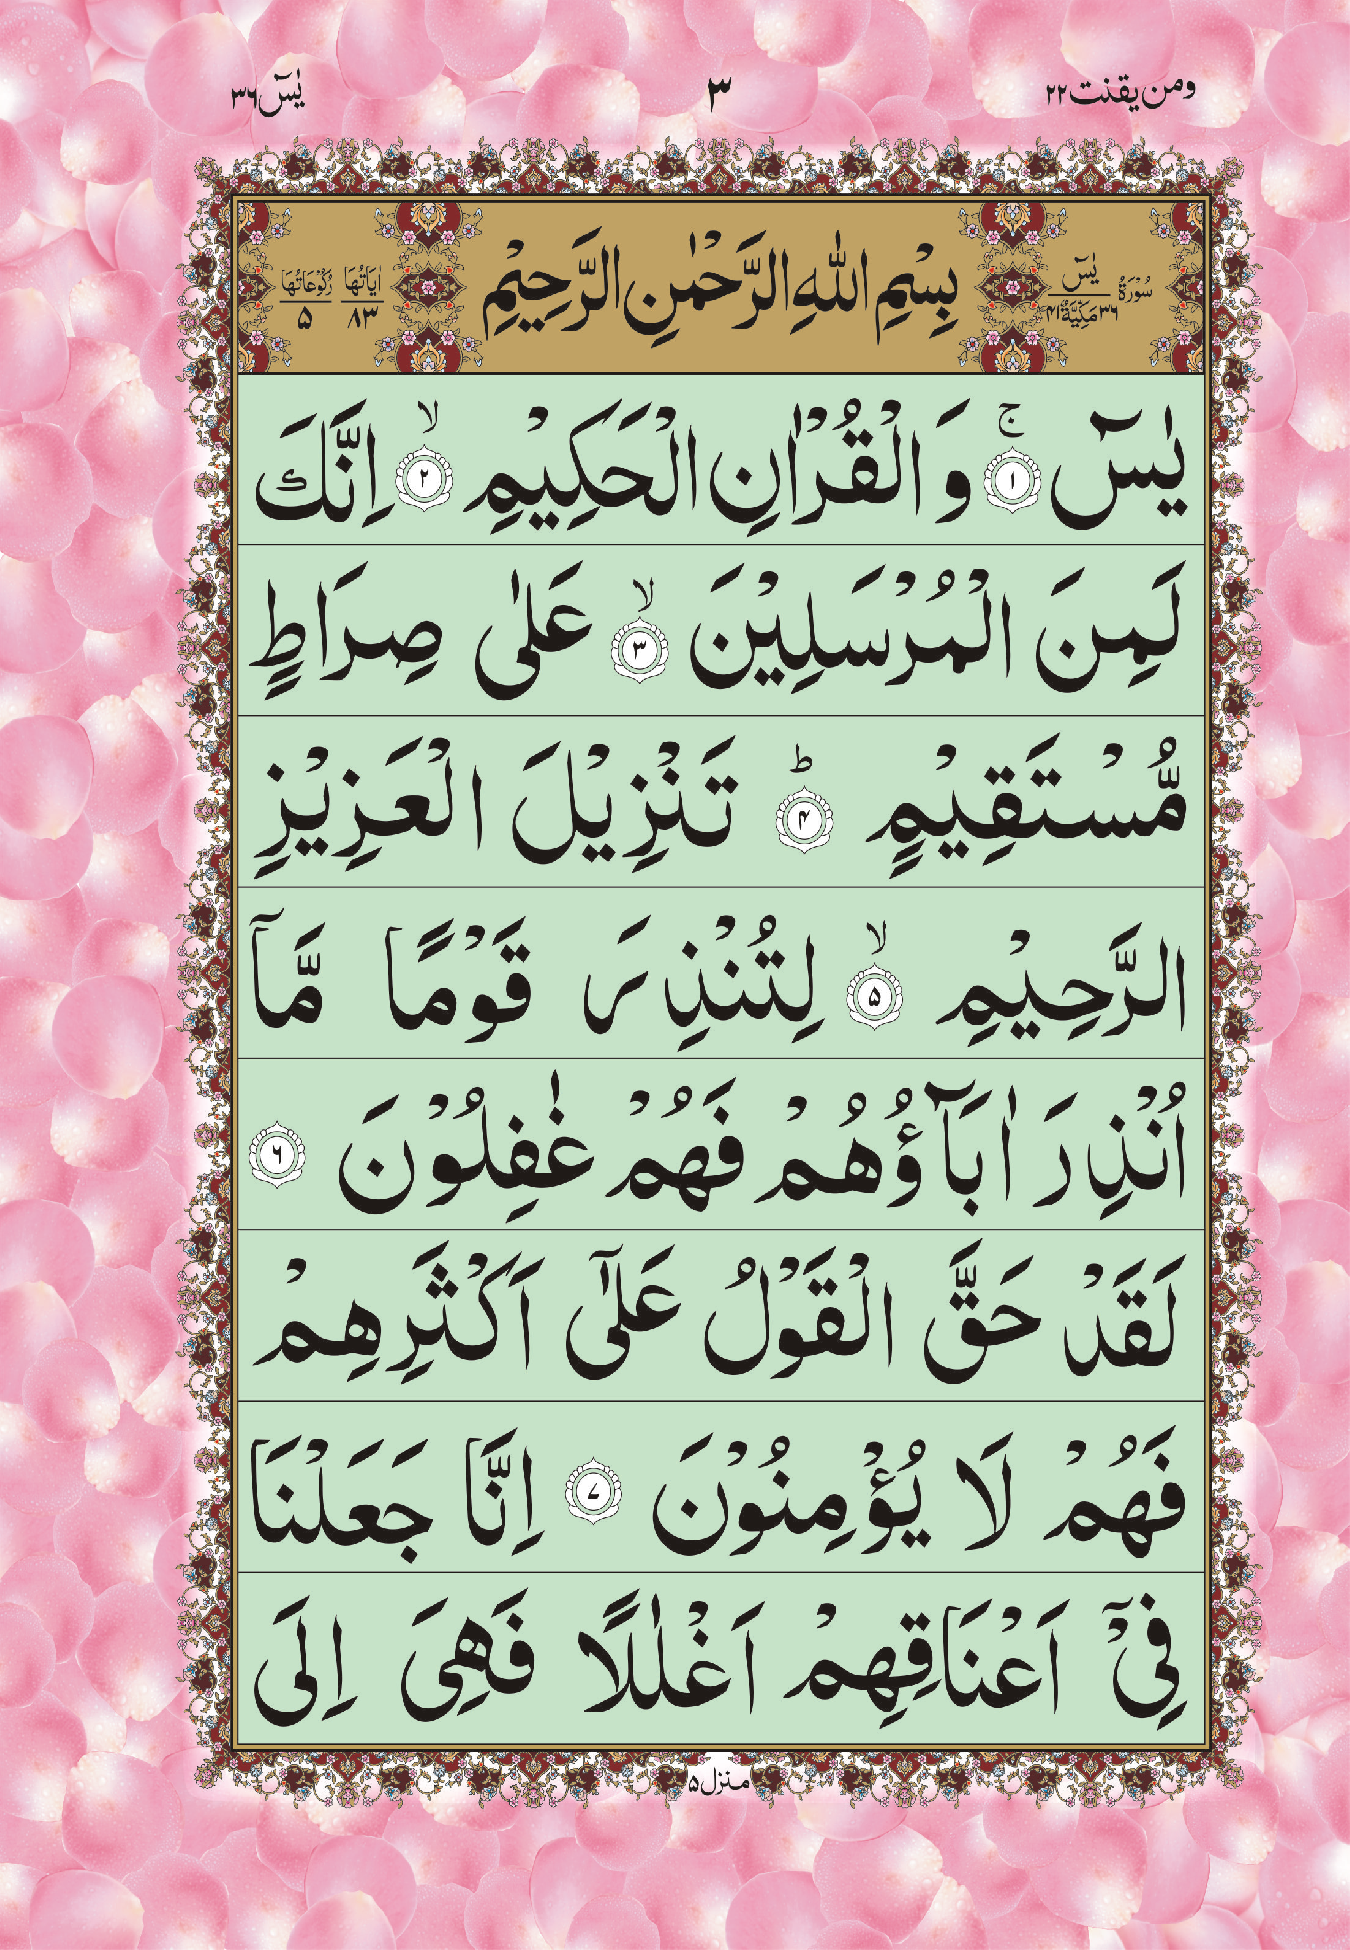 ومن یقنت ۲۲
۳
یٰسٓ ۳۶
سُوْرَةُ یٰسٓ ۳۶ مَكِّیَّةٌ ۴۱
بِسْمِ اللهِ الرَّحْمٰنِ الرَّحِیْمِ
اٰیَاتُهَا ۸۳
رُكُوْعَاتُهَا ۵
یٰسٓ ۚ﴿۱﴾ وَ الْقُرْاٰنِ الْحَكِیْمِ ۙ﴿۲﴾ اِنَّكَ
لَمِنَ الْمُرْسَلِیْنَ ۙ﴿۳﴾ عَلٰی صِرَاطٍ
مُّسْتَقِیْمٍ ؕ﴿۴﴾ تَنْزِیْلَ الْعَزِیْزِ
الرَّحِیْمِ ۙ﴿۵﴾ لِتُنْذِرَ قَوْمًا مَّاۤ
اُنْذِرَ اٰبَآؤُهُمْ فَهُمْ غٰفِلُوْنَ ﴿۶﴾
لَقَدْ حَقَّ الْقَوْلُ عَلٰۤی اَكْثَرِهِمْ
فَهُمْ لَا یُؤْمِنُوْنَ ﴿۷﴾ اِنَّا جَعَلْنَا
فِیْۤ اَعْنَاقِهِمْ اَغْلٰلًا فَهِیَ اِلَی
منزل ۵